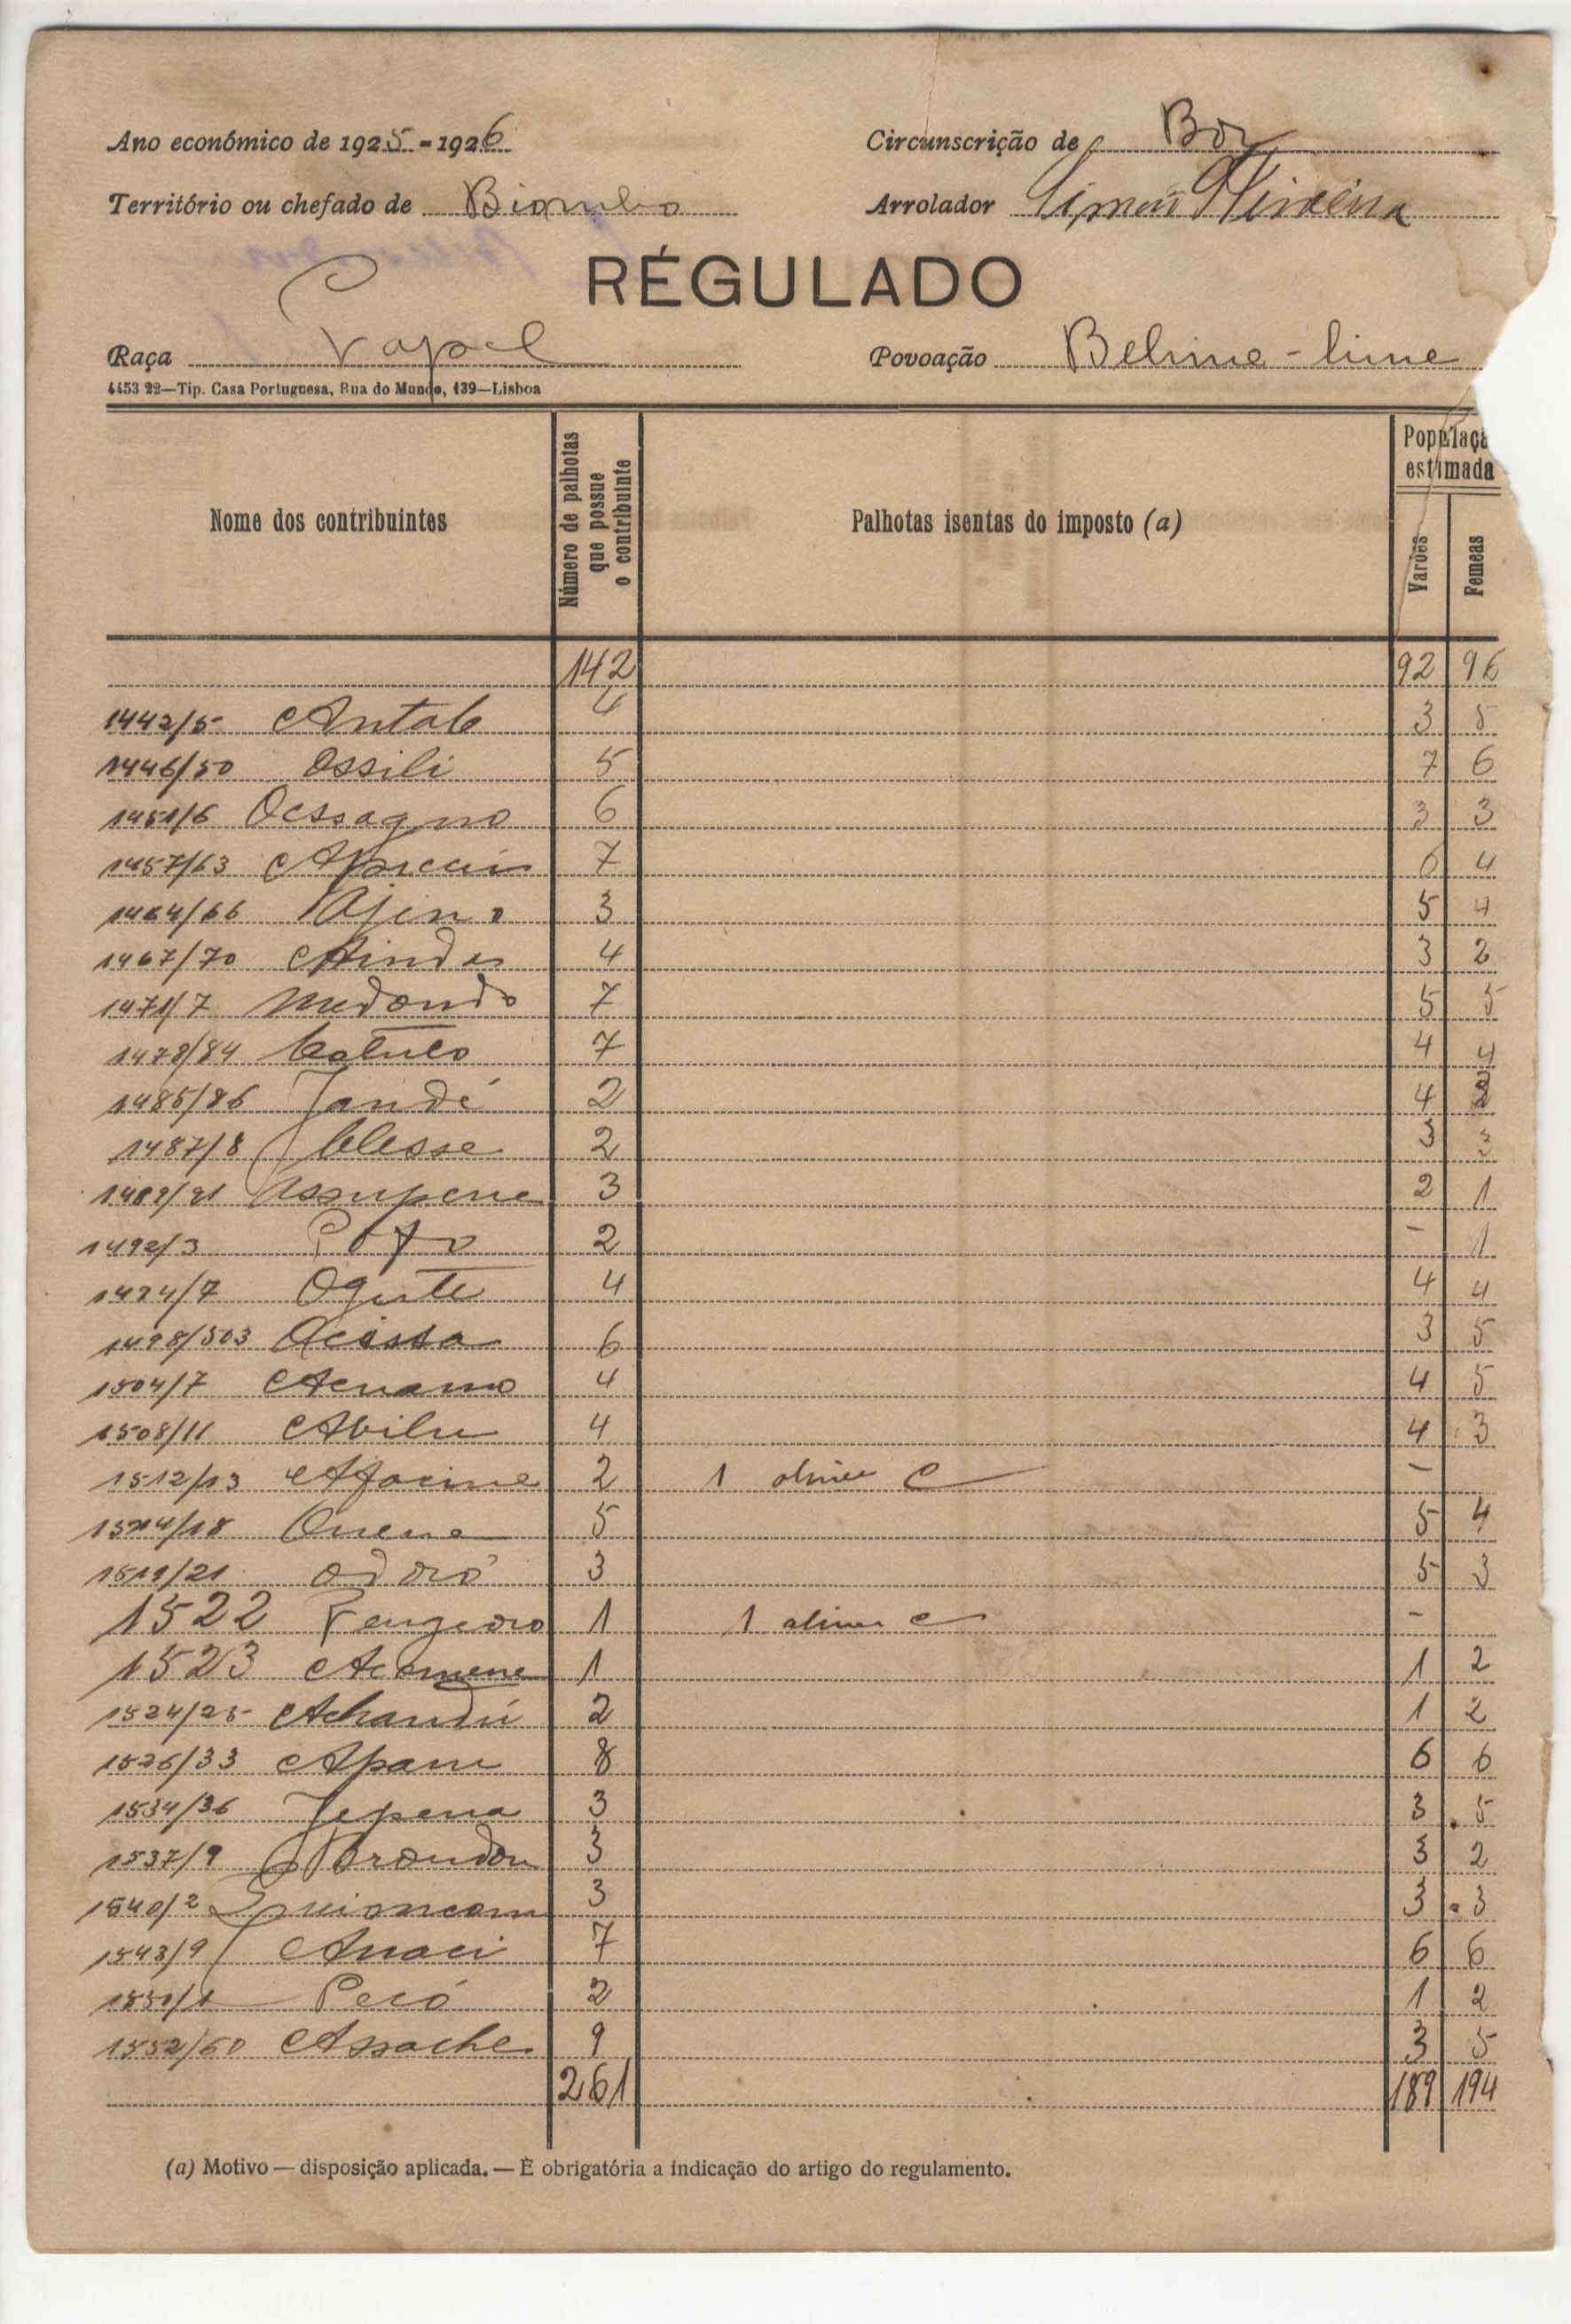 Ano económico de 1925-1926 Circunscrição de Bor
Território ou chefado de Biombo Arrolador Simão
RÉGULADO
Raça Papel Povoação Belime-lime
4453 22—Tip. Casa Portuguesa, Rua do Mundo, 139—Lisboa
Nome dos contribuintes Número de palhotas que possue o contribuinte Palhotas isentas do imposto (a) Populaçã estimada
Varões Femeas
142 92 96
1442/5 Antale 4 3 5
1446/50 Ossili 5 7 6
1451/6 Ocssagno 6 3 3
1457/63 7 6 4
1464/66 Ajeno 3 5 4
1467/70 Aindes 4 3 2
1471/7 Medondo 7 5 5
1478/84 Catuco 7 4 4
1485/86 Jandé 2 4 2
1487/8 Clesse 2 3 3
1489/91 Assupene 3 2 1
1492/3 Poto 2 - 1
1494/7 Ogute 4 4 4
1498/503 Acissa 6 3 5
1504/7 Acuamo 4 4 5
1508/11 Abilu 4 4 3
1512/13 Afocine 2 1 alinea C -
1514/18 Quene 5 5 4
1519/21 Odoró 3 5 3
1522 1 1 alinea c -
1523 Acomene 1 1 2
1524/25 Achandú 2 1 2
1526/33 Apam 8 6 6
1534/36 Jepena 3 3 5
1537/9 Brondon 3 3 2
1540/2 3 3 3
1543/9 Anaci 7 6 6
1550/1 Pecó 2 1 2
1552/60 Assache 9 3 5
261 189 194
(a) Motivo — disposição aplicada. — É obrigatória a indicação do artigo do regulamento.